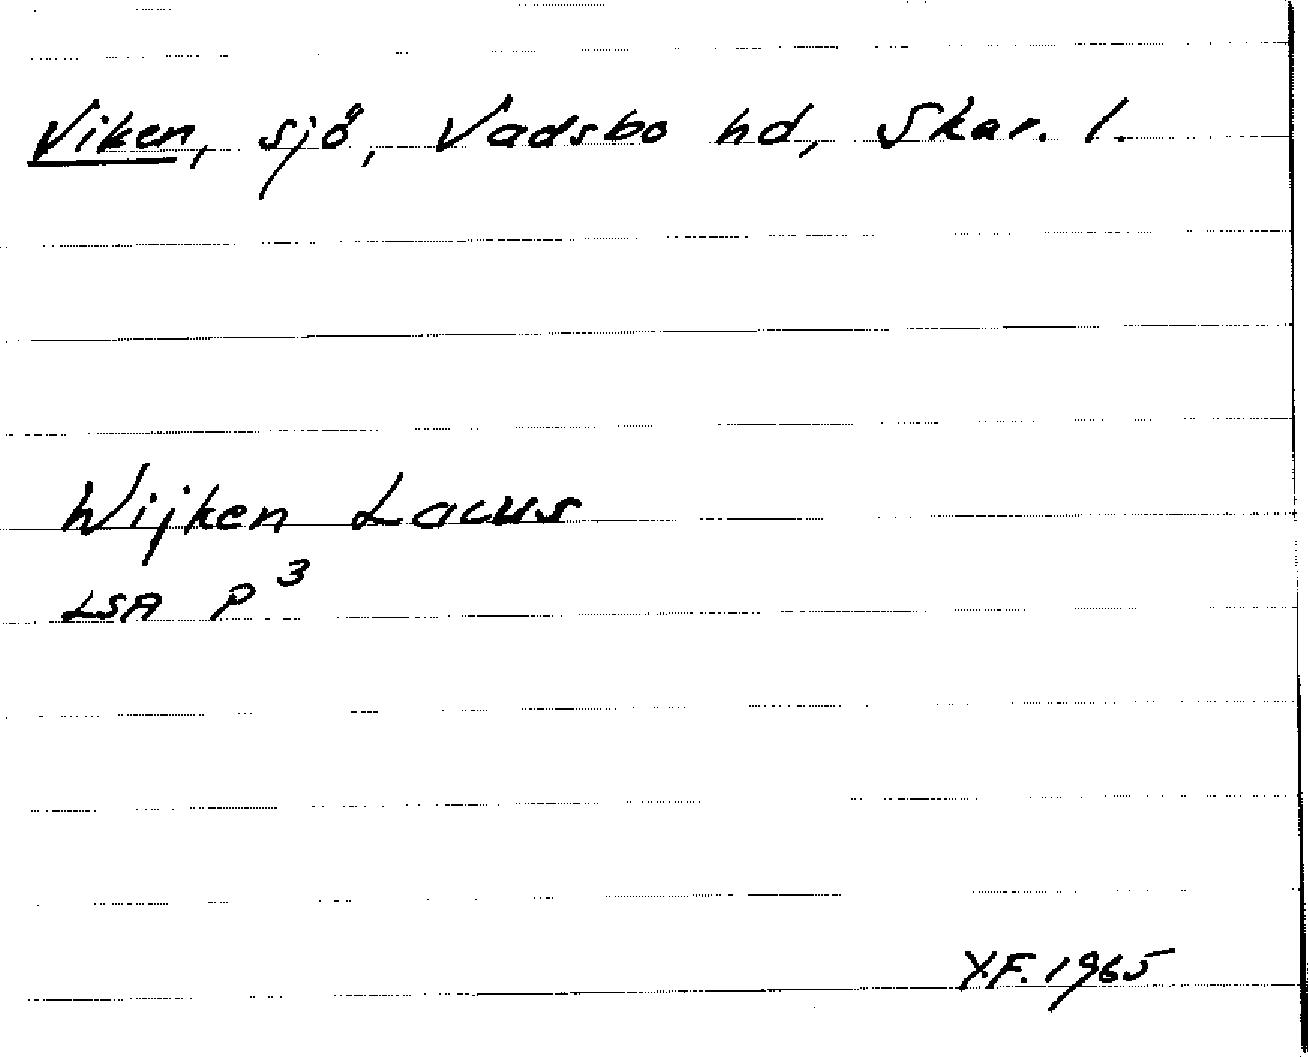 Viken, sjö, Vadsbo hd, Skar. l.
Wijken Lacus
LSA P³
Y.F. 1965